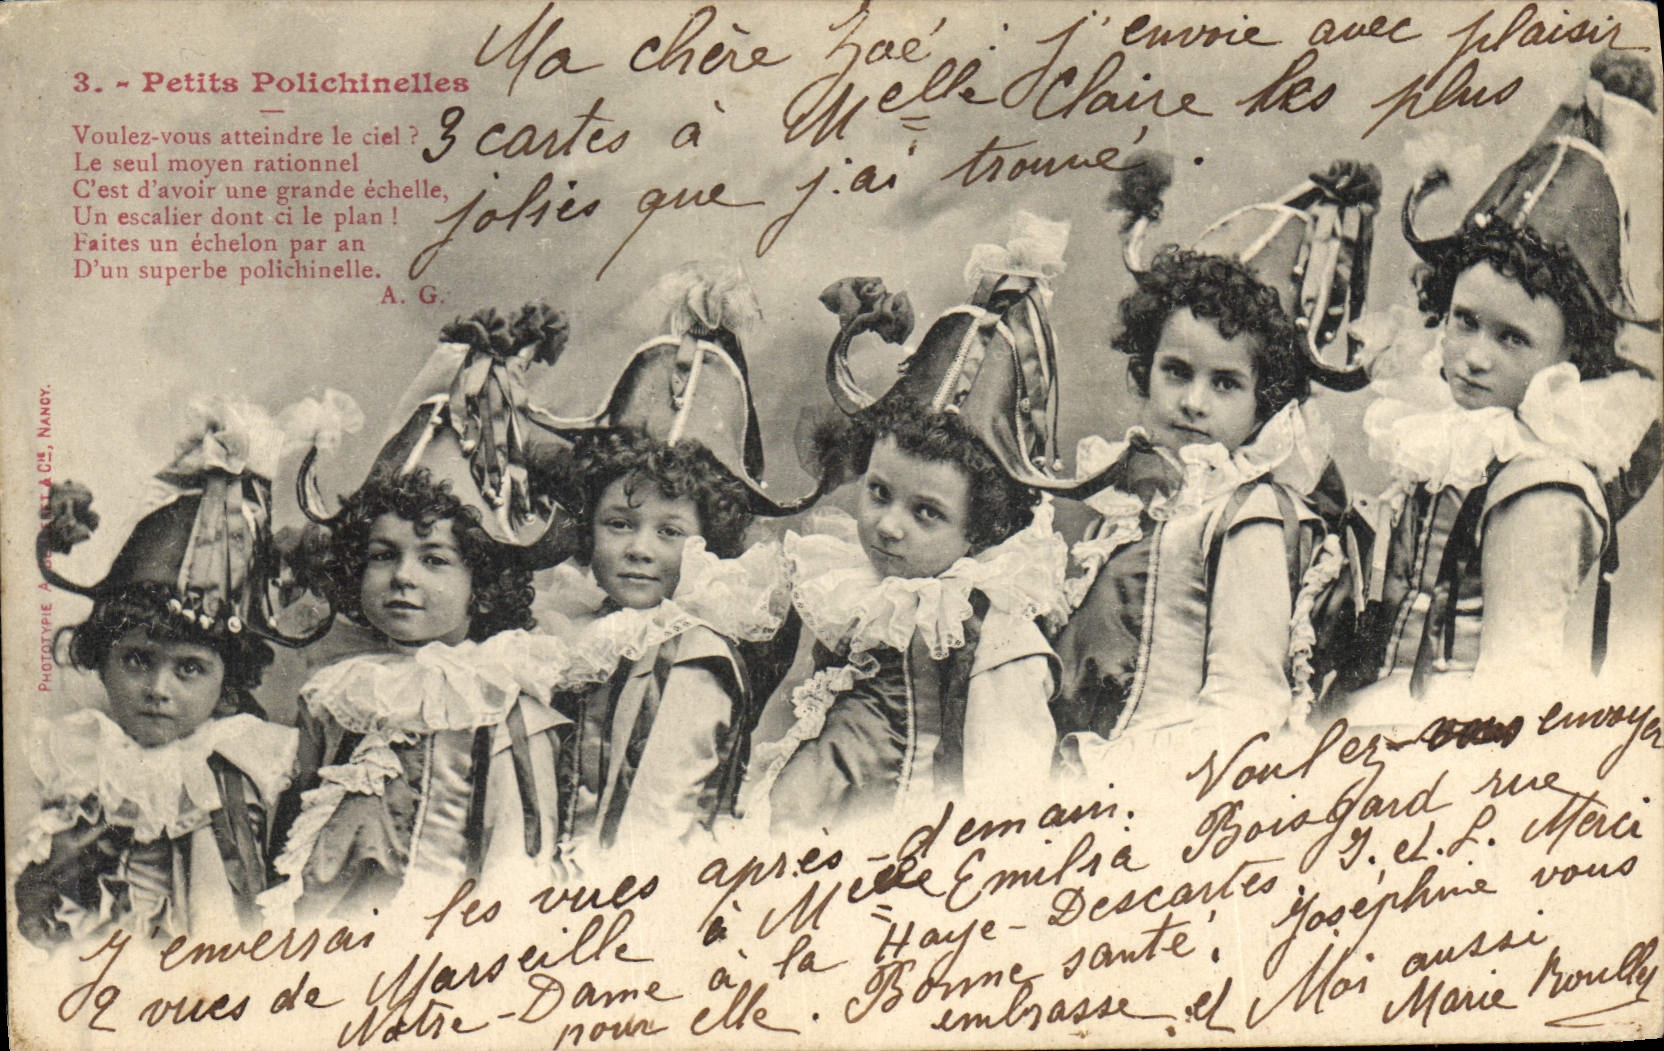 Ma chère Zoé : j'envoie avec plaisir
3 cartes à Melle Claire les plus
jolies que j'ai trouvé.
3. - Petits Polichinelles
Voulez-vous atteindre le ciel ?
Le seul moyen rationnel
C'est d'avoir une grande échelle,
Un escalier dont ci le plan !
Faites un échelon par an
D'un superbe polichinelle.
A. G.
PHOTOTYPIE A. & Cie, NANCY.
J'enverrai les vues après-demain. Voulez-vous envoyer
2 vues de Marseille à Melle Emilia Boisgard rue
Notre-Dame à la Haye-Descartes. I. et. L. Merci
pour elle. Bonne santé. Joséphine vous
embrasse et Moi aussi
Marie Roully